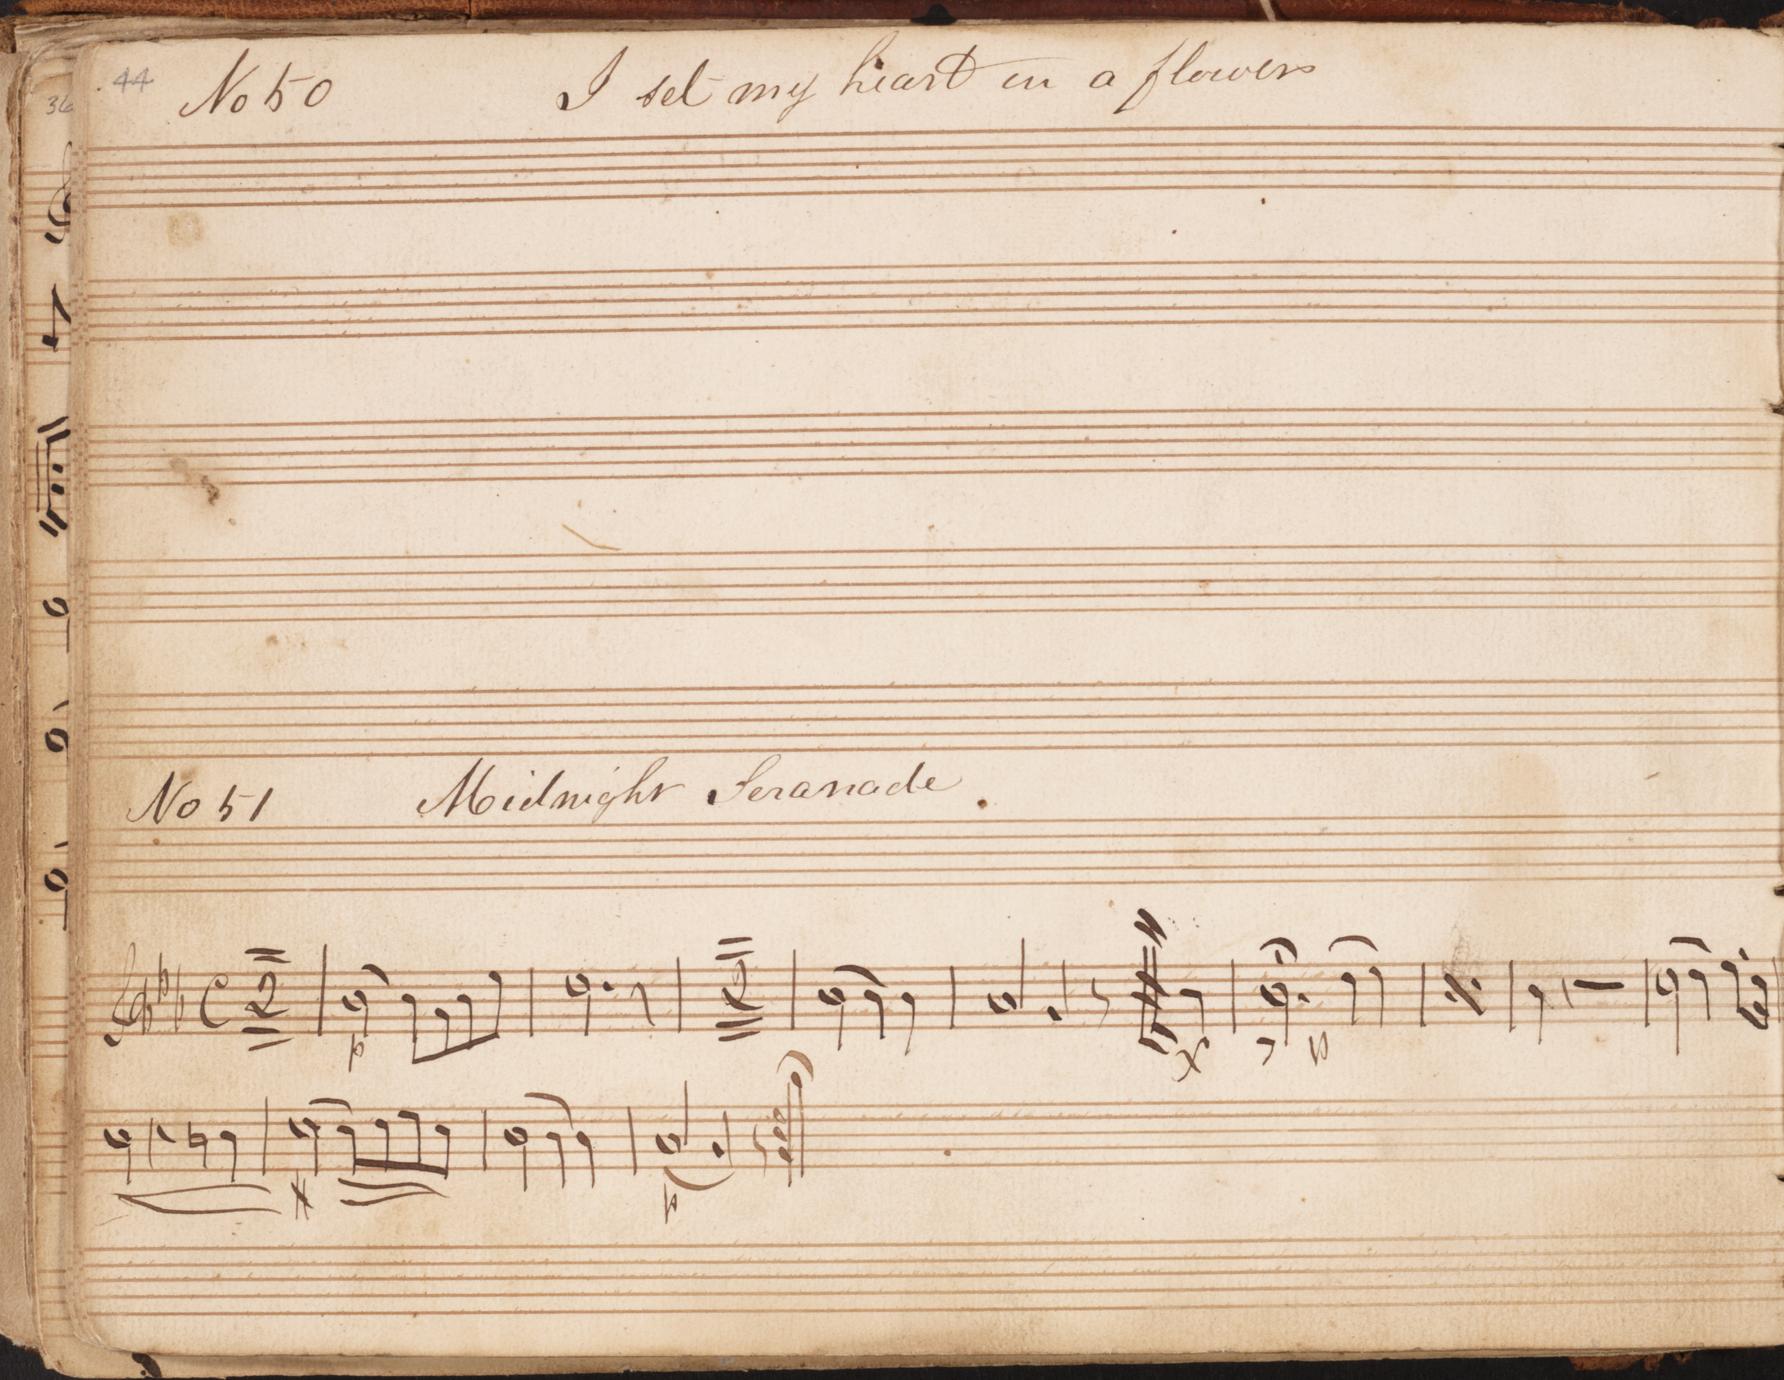 44
36
No 50 I set my heart in a flower
No 51 Midnight Seranade